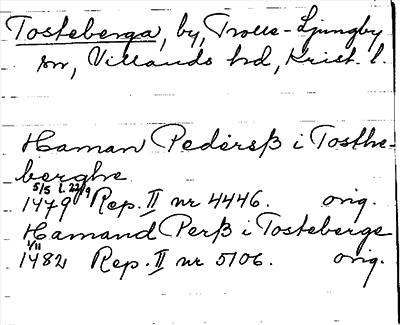 Tosteberga, by, Trolle-Ljungby
sn, Villands hd, Krist. l.
Haman Pedersß i Tosthe-
berghe
5/5 l. 22/9
1479 Rep. II nr 4446. orig.
Hamand Perß i Tosteberge
1/11
1482 Rep. II nr 5106. orig.